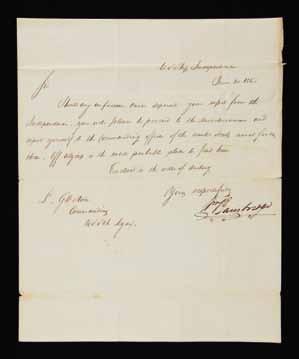 U S Ship Independence
June 20 1815
Sir
Should any unforeseen event separate your vessel from the
Independence, you will please to proceed to the Mediterranean and
report yourself to the Commanding officer of the United States naval forces
there. Off Algiers is the most probable place to find him
Enclosed is the order of sailing
Very respectfully
Wm Bainbridge
Commanding
US